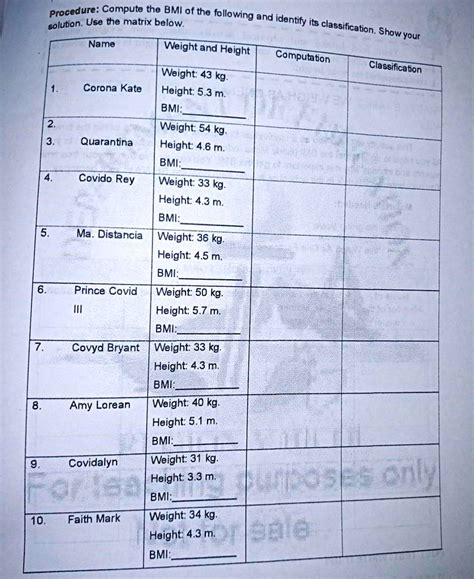 Procedure: Compute the BMI of the following and identify its classification. Show your
solution. Use the matrix below.
Name
Weight and Height
Computation
Classification
1. Corona Kate
Weight: 43 kg.
Height: 5.3 m.
BMI:
2.
3. Quarantina
Weight: 54 kg.
Height: 4.6 m.
BMI:
4. Covido Rey
Weight: 33 kg.
Height: 4.3 m.
BMI:
5. Ma. Distancia
Weight: 36 kg.
Height: 4.5 m.
BMI:
6. Prince Covid
III
Weight: 50 kg.
Height: 5.7 m.
BMI:
7. Covyd Bryant
Weight: 33 kg.
Height: 4.3 m.
BMI:
8. Amy Lorean
Weight: 40 kg.
Height: 5.1 m.
BMI:
9. Covidalyn
Weight: 31 kg.
Height: 3.3 m.
BMI:
10. Faith Mark
Weight: 34 kg.
Height: 4.3 m.
BMI:
purposes only
for sale